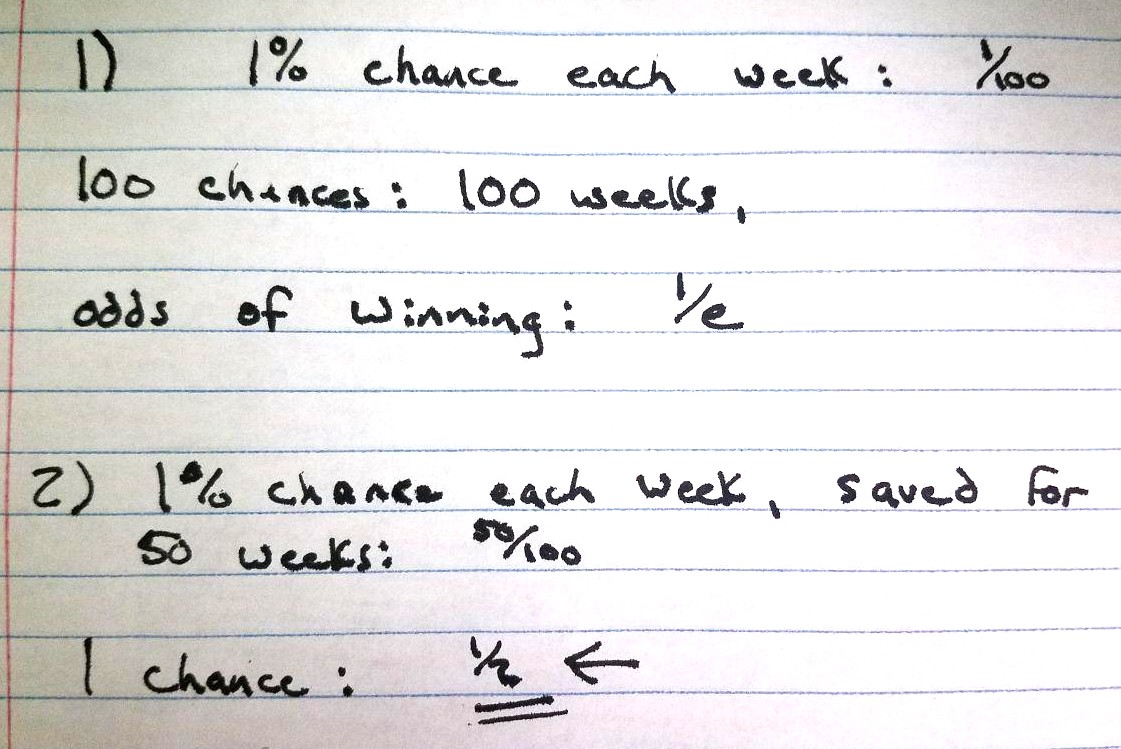 1) 1% chance each week: 1/100
100 chances: 100 weeks,
odds of winning: 1/e
2) 1% chance each week, saved for
50 weeks: 50/100
1 chance: 1/2 ←